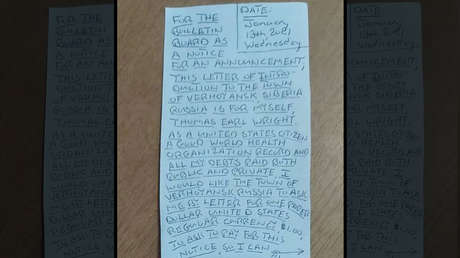 FOR THE
BULLETIN
BOARD AS
A NOTICE
FOR AN ANNOUNCEMENT,
DATE:
January
13th 2021
Wednesday
THIS LETTER OF INTRO-
DUCTION TO THE TOWN
OF VERHOTANSK SIBERIA
RUSSIA IS FOR MYSELF
THOMAS EARL WRIGHT.
AS A UNITED STATES CITIZEN
A GOOD WORLD HEALTH
ORGANIZATION RECORD AND
ALL MY DEBTS PAID BOTH
PUBLIC AND PRIVATE I
WOULD LIKE THE TOWN OF
VERHOTANSK RUSSIA TO ASK
ME BY LETTER FOR ONE PAPER
DOLLAR UNITED STATES
REGULAR CURRENCY $1.00,
IS ASK TO PAY FOR THIS
NOTICE SO I CAN